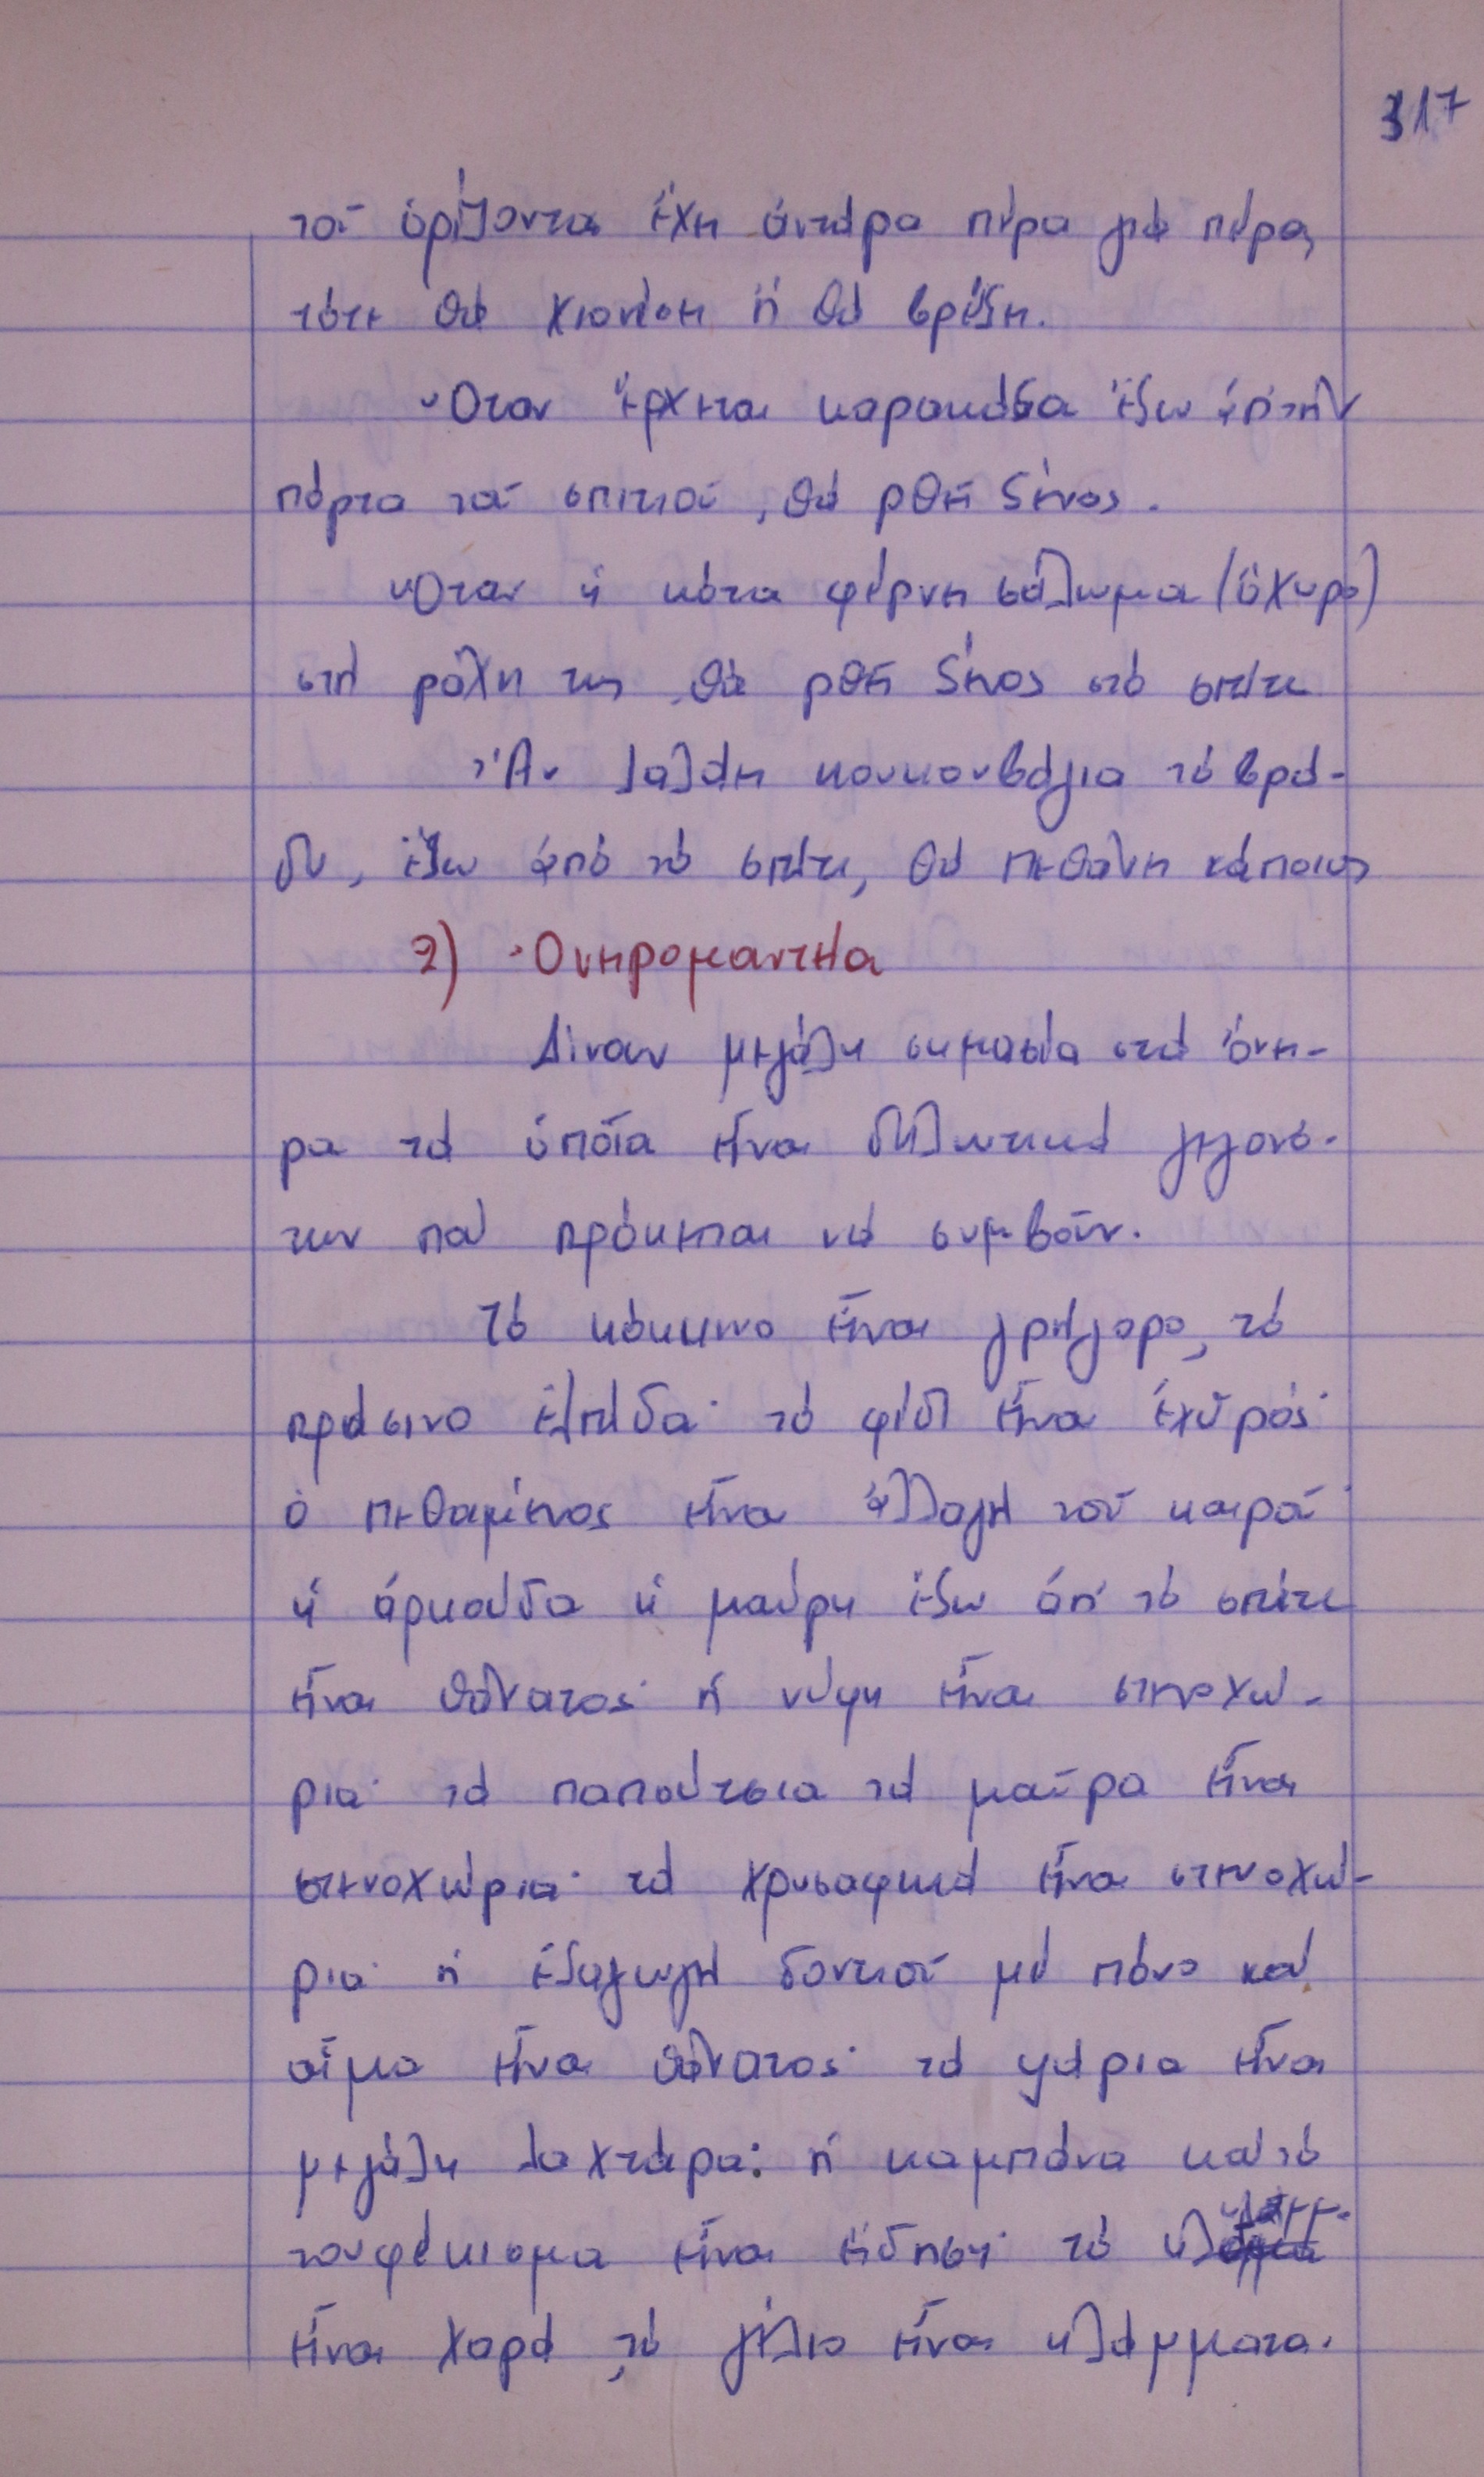 317
τοῦ ὁρίζοντα ἔχει ἀντάρα πέρα γιά πέρα,
τότε θά χιονίσει ἤ θά βρέξει.
Ὅταν ἔρχεται καρακάξα ἔξω ἀπ' τήν
πόρτα τοῦ σπιτιοῦ, θά ρθῆ ξένος.
Ὅταν ἡ κότα φέρνει σάλωμα (ἄχυρο)
στή ράχη της θά ρθῆ ξένος στό σπίτι
Ἄν λαλάει κουκουβάγια τό βρά-
δυ, ἔξω ἀπό τό σπίτι, θά πεθάνει κάποιος
2) Ὀνειρομαντεία
Δίνουν μεγάλη σημασία στά ὄνει-
ρα τά ὁποῖα εἶναι δηλωτικά γεγονό-
των πού πρόκειται νά συμβοῦν.
Τό κόκκινο εἶναι γρήγορο, τό
πράσινο ἐλπίδα· τό φίδι εἶναι ἐχθρός·
ὁ πεθαμένος εἶναι ἀλλαγή τοῦ καιροῦ·
ἡ ἀρκούδα ἡ μαύρη ἔξω ἀπ' τό σπίτι
εἶναι θάνατος· ἡ νύφη εἶναι στενοχώ-
ρια· τά παπούτσια τά μαῦρα εἶναι
στενοχώρια· τά χρυσαφικά εἶναι στενοχώ-
ρια· ἡ ἐξαγωγή δοντιοῦ μέ πόνο καί
αἷμα εἶναι θάνατος· τά ψάρια εἶναι
μεγάλη λαχτάρα: ἡ καμπάνα καί τό
τουφέκισμα εἶναι εἴδηση· τό
εἶναι χαρά, τό γέλιο εἶναι κλάμματα.